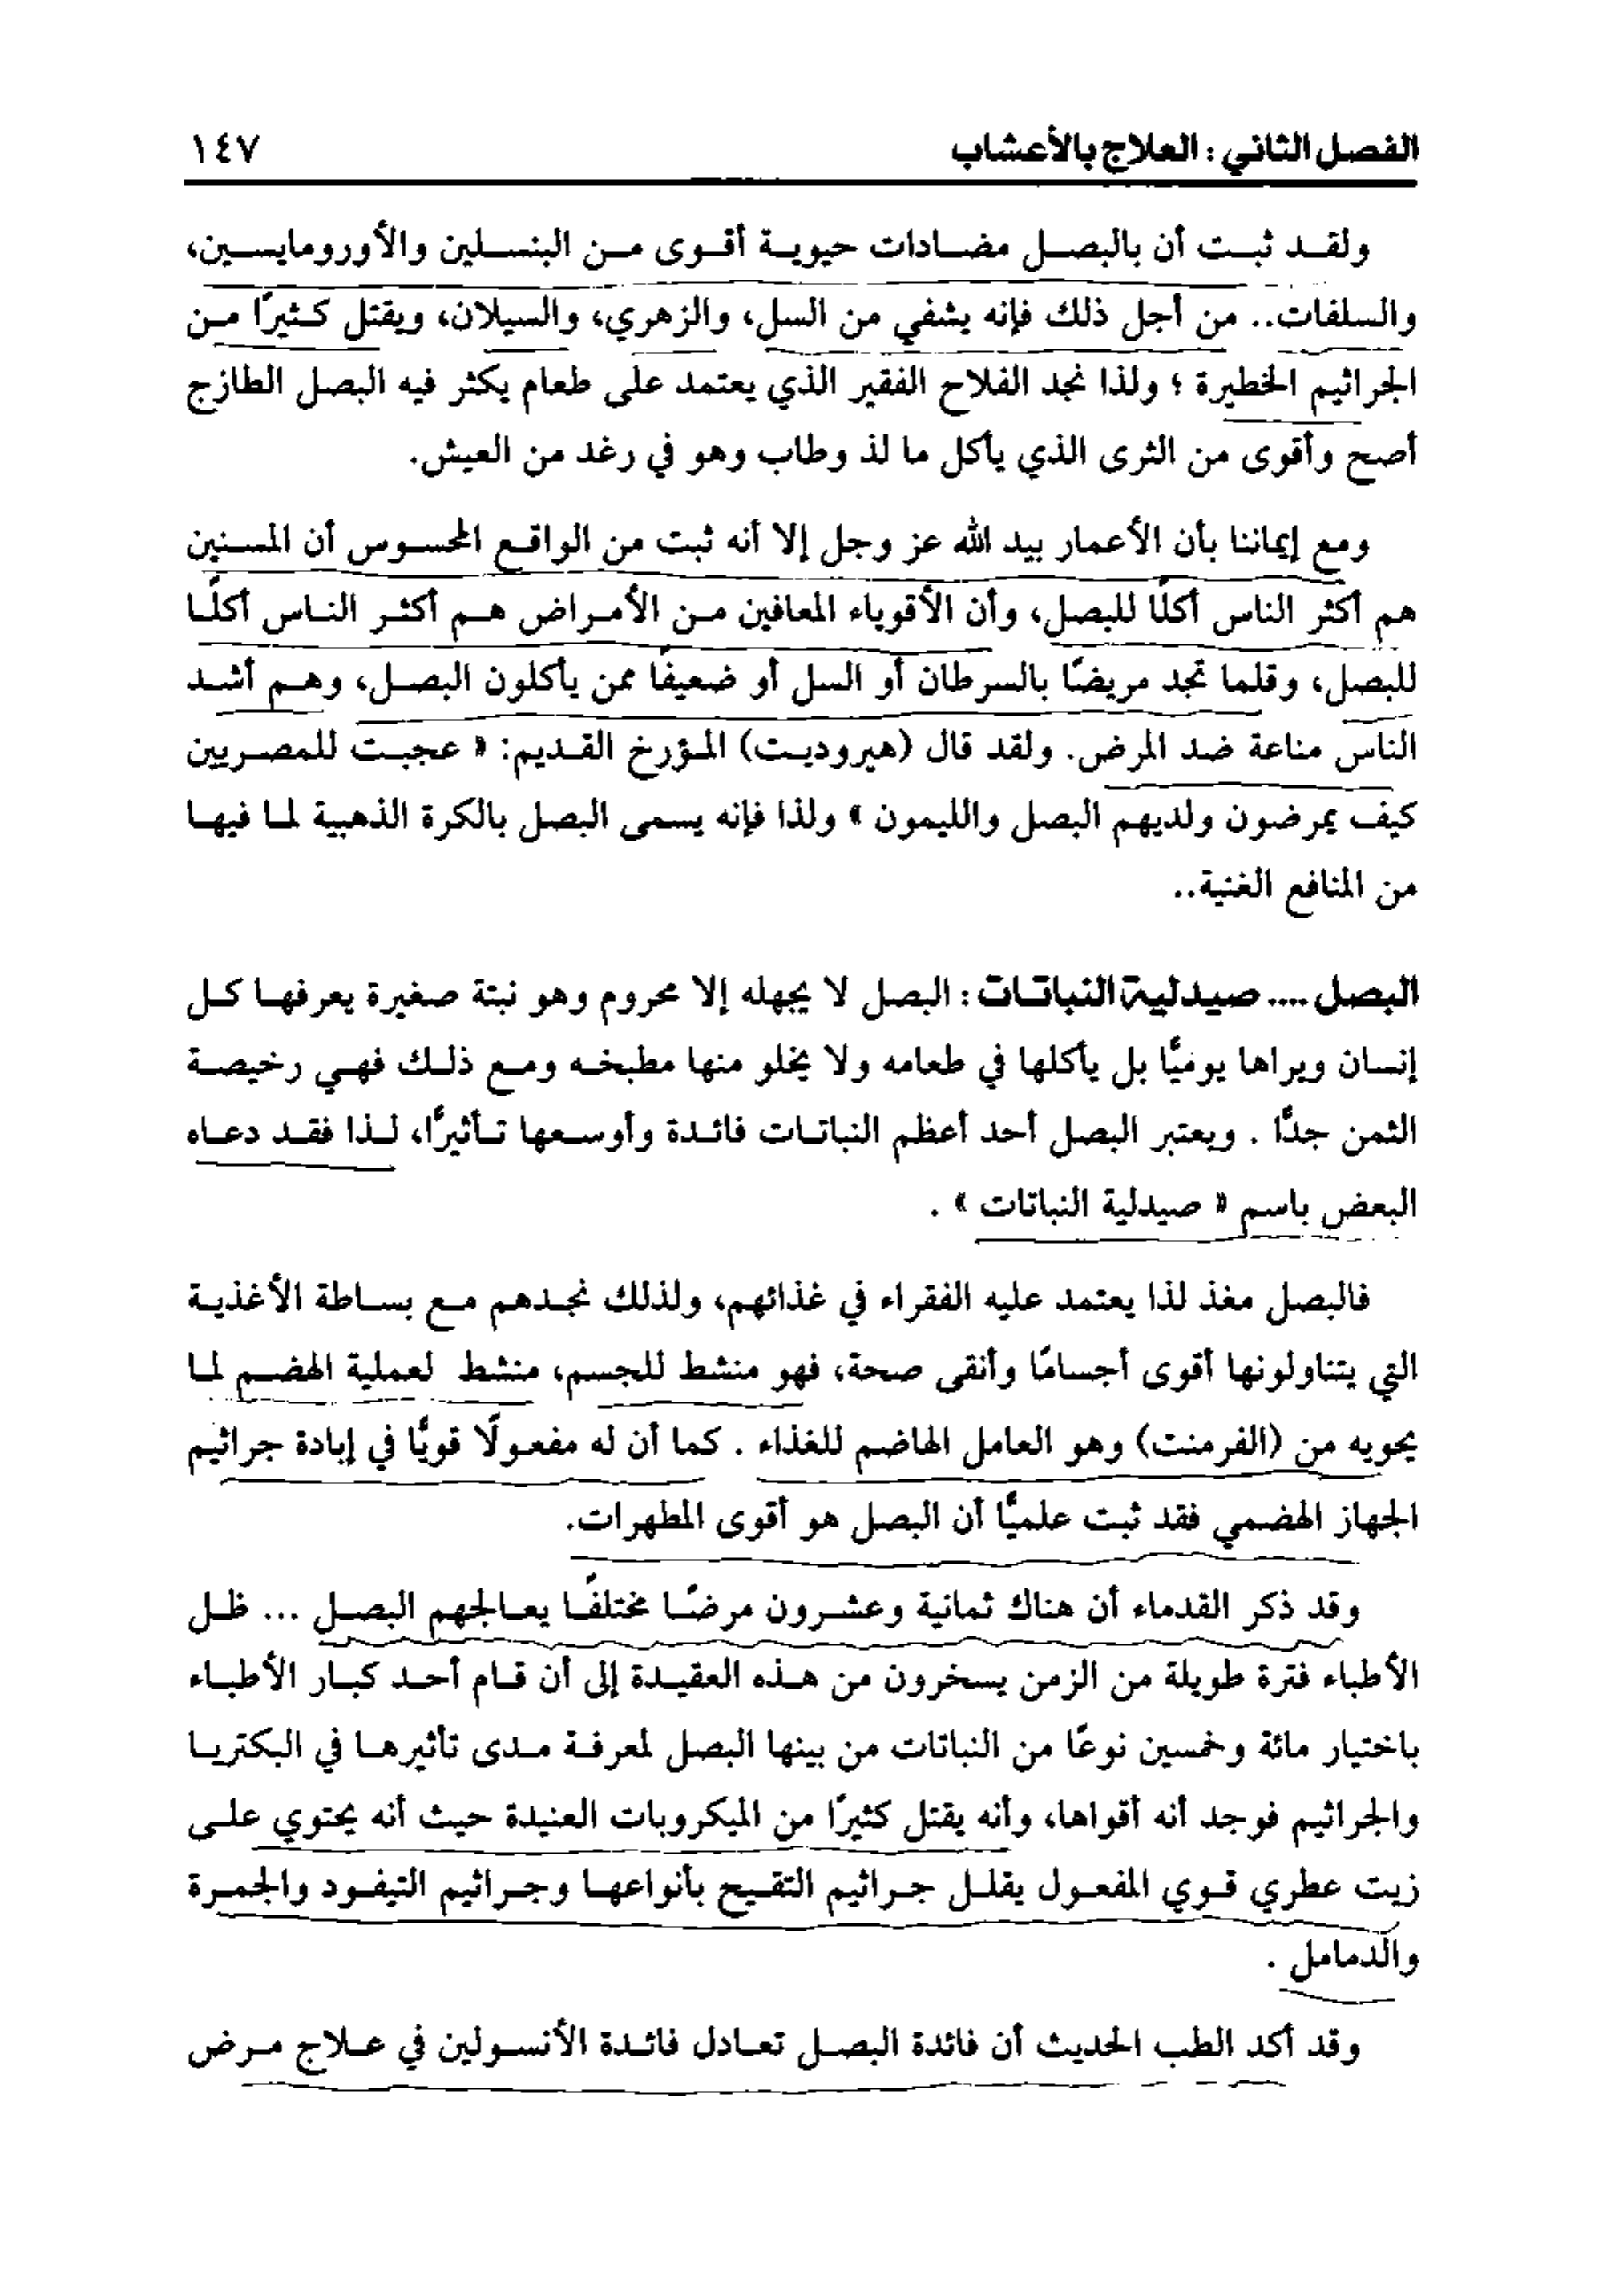 الفصل الثاني : العلاج بالأعشاب ١٤٧
ولقد ثبت أن بالبصل مضادات حيوية أقوى من البنسلين والأورومايسين،
والسلفات.. من أجل ذلك فإنه يشفي من السل، والزهري، والسيلان، ويقتل كثيرًا من
الجراثيم الخطيرة ؛ ولذا نجد الفلاح الفقير الذي يعتمد على طعام يكثر فيه البصل الطازج
أصح وأقوى من الثرى الذي يأكل ما لذ وطاب وهو في رغد من العيش.
ومع إيماننا بأن الأعمار بيد الله عز وجل إلا أنه ثبت من الواقع المحسوس أن المسنين
هم أكثر الناس أكلًا للبصل، وأن الأقوياء المعافين من الأمراض هم أكثر الناس أكلًا
للبصل، وقلما تجد مريضًا بالسرطان أو السل أو ضعيفًا ممن يأكلون البصل، وهم أشد
الناس مناعة ضد المرض. ولقد قال (هيروديت) المؤرخ القديم: « عجبت للمصريين
كيف يمرضون ولديهم البصل والليمون » ولذا فإنه يسمى البصل بالكرة الذهبية لما فيها
من المنافع الغنية..
البصل .... صيدلية النباتات : البصل لا يجهله إلا محروم وهو نبتة صغيرة يعرفها كل
إنسان ويراها يوميًا بل يأكلها في طعامه ولا يخلو منها مطبخه ومع ذلك فهي رخيصة
الثمن جدًا . ويعتبر البصل أحد أعظم النباتات فائدة وأوسعها تأثيرًا، لذا فقد دعاه
البعض باسم « صيدلية النباتات » .
فالبصل مغذ لذا يعتمد عليه الفقراء في غذائهم، ولذلك نجدهم مع بساطة الأغذية
التي يتناولونها أقوى أجسامًا وأنقى صحة، فهو منشط للجسم، منشط لعملية الهضم لما
يحويه من (الفرمنت) وهو العامل الهاضم للغذاء . كما أن له مفعولًا قويًا في إبادة جراثيم
الجهاز الهضمي فقد ثبت علميًا أن البصل هو أقوى المطهرات.
وقد ذكر القدماء أن هناك ثمانية وعشرون مرضًا مختلفًا يعالجهم البصل ... ظل
الأطباء فترة طويلة من الزمن يسخرون من هذه العقيدة إلى أن قام أحد كبار الأطباء
باختيار مائة وخمسين نوعًا من النباتات من بينها البصل لمعرفة مدى تأثيرها في البكتريا
والجراثيم فوجد أنه أقواها، وأنه يقتل كثيرًا من الميكروبات العنيدة حيث أنه يحتوي على
زيت عطري قوي المفعول يقلل جراثيم التقيح بأنواعها وجراثيم التيفود والجمرة
والدمامل .
وقد أكد الطب الحديث أن فائدة البصل تعادل فائدة الأنسولين في علاج مرض